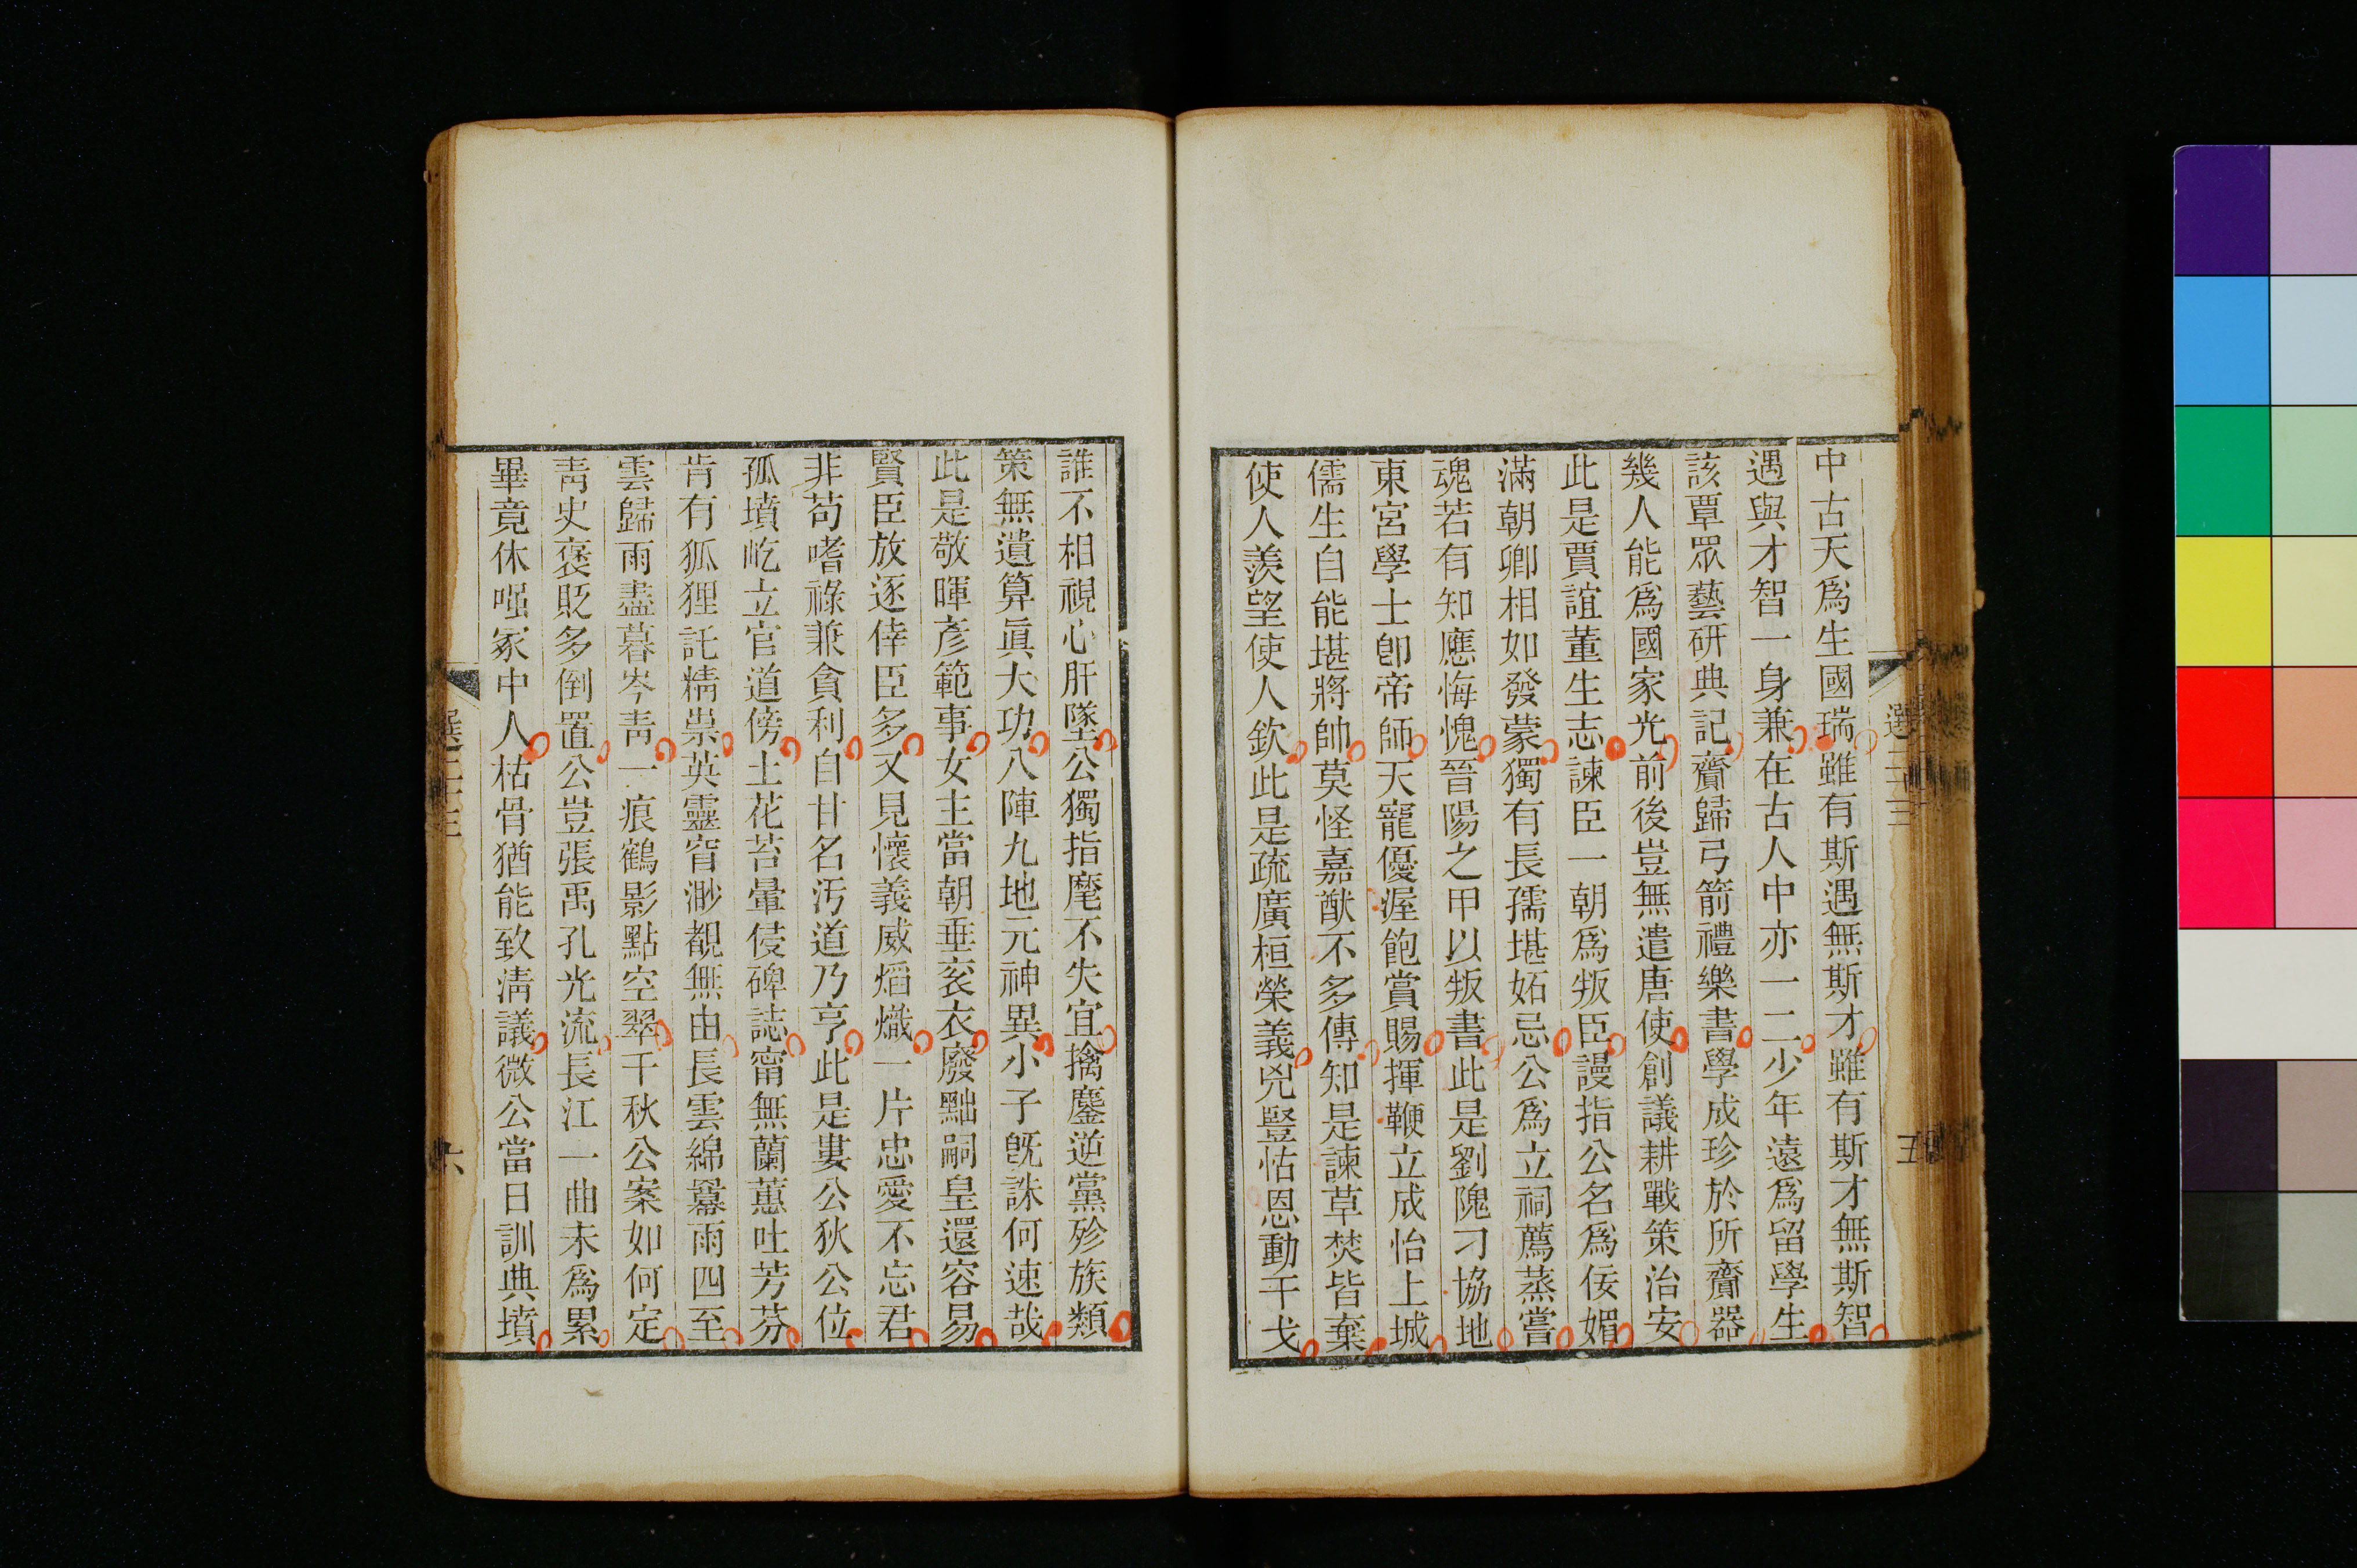 中古天爲生國瑞雖有斯遇無斯才雖有斯才無斯智
遇與才智一身兼在古人中亦一二少年遠爲留學生
該覃眾藝研典記齎歸弓箭禮樂書學成珍於所齎器
幾人能爲國家光前後豈無遣唐使創議耕戰策治安
此是賈誼董生志諫臣一朝爲叛臣謾指公名爲佞媚
滿朝卿相如發蒙獨有長孺堪妬忌公爲立祠薦蒸嘗
魂若有知應悔愧晉陽之甲以叛書此是劉隗刁協地
東宮學士卽帝師天寵優渥飽賞賜揮鞭立成怡上城
儒生自能堪將帥莫怪嘉猷不多傳知是諫草焚皆棄
使人羨望使人欽此是疏廣桓榮義兇豎怙恩動干戈
選二十三
五
誰不相視心肝墜公獨指麾不失宜擒鏖逆黨殄族類
策無遺算眞大功八陣九地元神異小子旣誅何速哉
此是敬暉彥範事女主當朝垂袞衣廢黜嗣皇還容易
賢臣放逐倖臣多又見懷義威熖熾一片忠愛不忘君
非苟嗜祿兼貪利自甘名汚道乃亨此是婁公狄公位
孤墳屹立官道傍土花苔暈侵碑誌甯無蘭蕙吐芳芬
肯有狐狸託精祟英靈窅渺覩無由長雲綿羃雨四至
雲歸雨盡暮岑靑一痕鶴影點空翠千秋公案如何定
靑史褒貶多倒置公豈張禹孔光流長江一曲未爲累
畢竟休嗤冢中人枯骨猶能致淸議微公當日訓典墳
選二十三
六